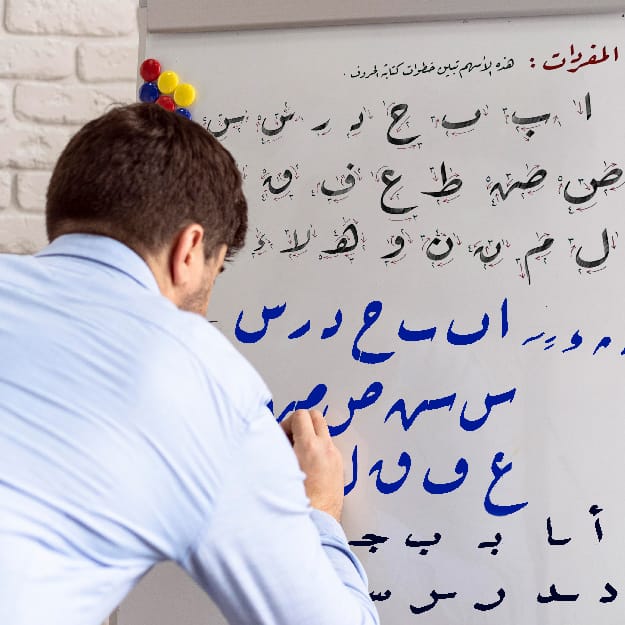 المفردات : هذه الأسهم تبين خطوات كتابة الحروف .
ا ب ب ح د ر س س
ص ص ط ع ف ق
ل م ن ن و هـ لا ء
ا ں ٮ ح د ر س
س س ص ص
ع ف ق ل
أ ا ب ب جـ
د د ر س س